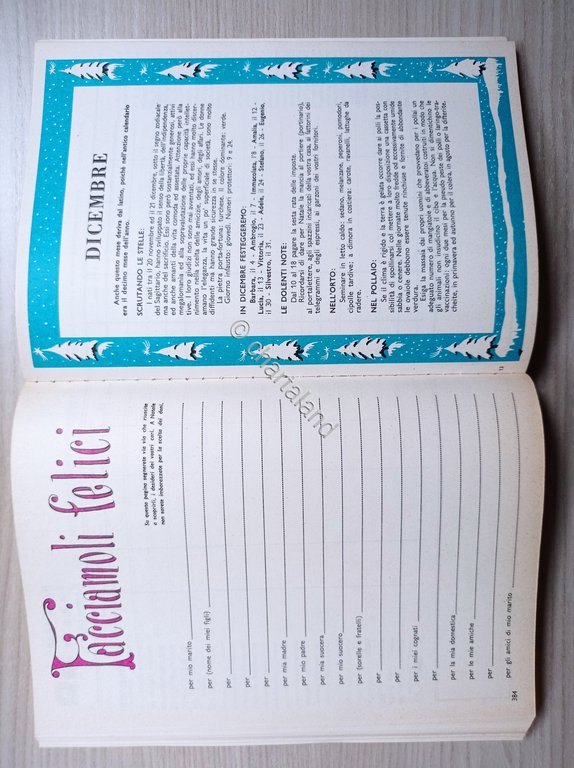 Facciamoli felici
Su queste pagine segnerete via via che riuscite
a scoprirli, i desideri dei vostri cari. A Natale
non sarete imbarazzate per la scelta dei doni.
per mio marito
per (nome dei miei figli)
per
per
per
per mia madre
per mio padre
per mia suocera
per mio suocero
per (sorelle e fratelli)
per
per
per i miei cognati
per
per la mia domestica
per le mie amiche
per
per gli amici di mio marito
384
DICEMBRE
Anche questo mese deriva dal latino, perché nell'antico calendario
era il decimo mese dell'anno.
SCRUTANDO LE STELLE:
I nati tra il 20 novembre ed il 21 dicembre, sotto il segno zodiacale
del Sagittario, hanno sviluppato il senso della libertà, dell'indipendenza,
ma anche del sacrificio. Essi sono sostanzialmente generosi, attivi
ed anche amanti della vita comoda ed assestata. Attenzione però alla
megalomania ed alla sopravalutazione delle proprie capacità intellet-
tive. I loro giudizi non sono mai avventati, ed essi hanno molto discer-
nimento nella scelta delle amicizie, degli amori, degli affari. Le donne
amano l'eleganza, la vita un po' superficiale di società, sono molto
diffidenti ma hanno una grande sicurezza in se stesse.
La pietra porta-fortuna: turchese. Il colore dominante: verde.
Giorno infausto: giovedì. Numeri protettori: 9 e 24.
IN DICEMBRE FESTEGGEREMO:
Barbara, il 4 - Ambrogio, il 7 - Immacolata, l'8 - Amalia, il 12 -
Lucia, il 13 - Vittoria, il 23 - Adele, il 24 - Stefano, il 26 - Eugenio,
il 30 - Silvestro, il 31.
LE DOLENTI NOTE:
Dal 10 al 18 pagare la sesta rata delle imposte.
Ricordarsi di dare per Natale la mancia al portiere (portinaio),
al portalettere, agli spazzini incaricati della vostra casa, ai fattorini dei
telegrammi e degli espressi, ai garzoni dei vostri fornitori.
NELL'ORTO:
Seminare in letto caldo: sedano, melanzane, peperoni, pomodori,
cipolle tardive; a dimora in cassette: carote, ravanelli, lattughe da
radere.
NEL POLLAIO:
Se il clima è rigido e la terra è gelata occorre dare ai polli la pos-
sibilità di spollinarsi col mettere a loro disposizione una cassetta con
sabbia o cenere. Nelle giornate molto fredde od eccessivamente umide
le ovaiole debbono essere tenute rinchiuse e fornite di abbondante
verdura.
Esiga la massaia dai propri uomini che provvedano per i pollai un
adeguato numero di mangiatoie e di abbeveratoi costruiti in modo che
gli animali non insudicino il cibo e l'acqua. Non si dimentichino le
vaccinazioni: ogni due mesi per la pseudo peste dei polli o laringo-tra-
cheite, in primavera ed autunno per il colera, in agosto per la difterite.
13
© chartaland